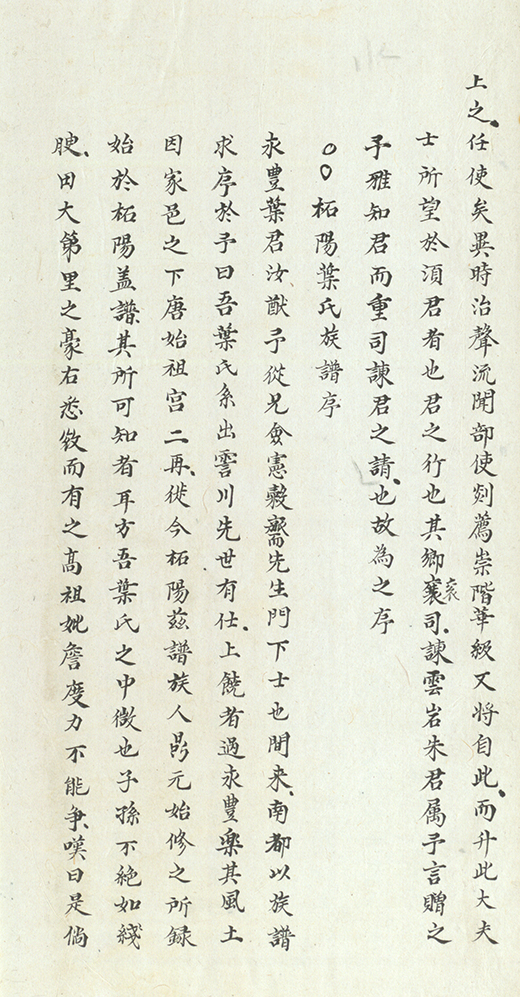 上之任使矣異時治聲流聞部使剡薦崇階華級又將自此而升此大夫
士所望於湏君者也君之行也其鄉㐮司諫雲岩朱君属予言贈之
予雅知君而重司諫君之請也故為之序
○○柘陽葉氏族譜序
永豐葉君汝猷予從兄僉憲穀齋先生門下士也間来南都以族譜
求序於予曰吾葉氏系出霅川先世有仕上饒者過永豐樂其風土
因家邑之下唐始祖宫二再徙今柘陽茲譜族人昂元始修之所録
始於柘陽盖譜其所可知者耳方吾葉氏之中微也子孫不絶如綫
腴田大第里之豪右悉斂而有之髙祖妣詹度力不能争嘆曰是倘